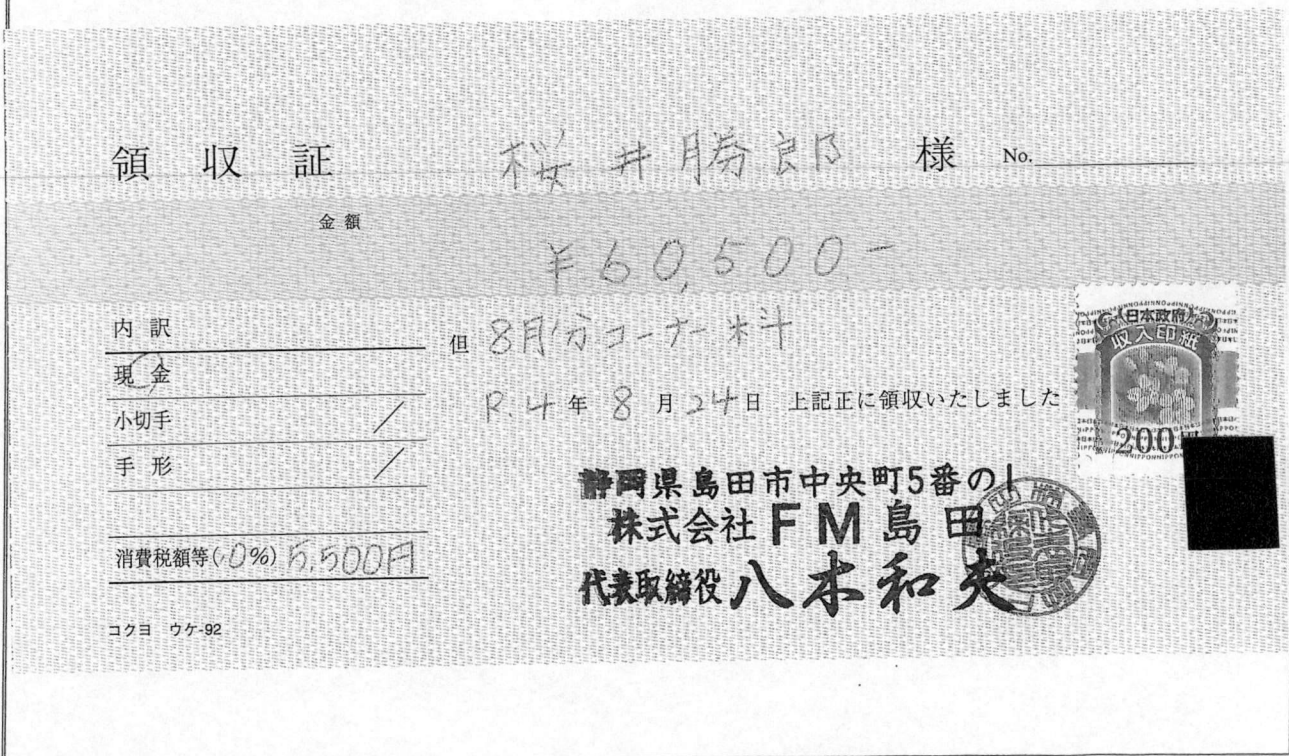 領収証 桜井勝良郎 様 No.
金額
¥60,500-
内訳
現金
小切手 /
手形 /
消費税額等(10%) 5,500円
コクヨ ウケ-92
但 8月分コーナー料
R.4年8月24日 上記正に領収いたしました
日本政府
収入印紙
200円
静岡県島田市中央町5番の1
株式会社FM島田
代表取締役八木和夫